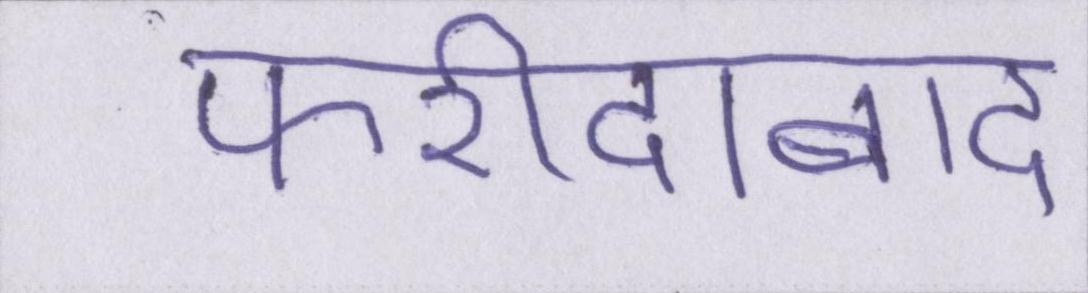 फरीदाबाद